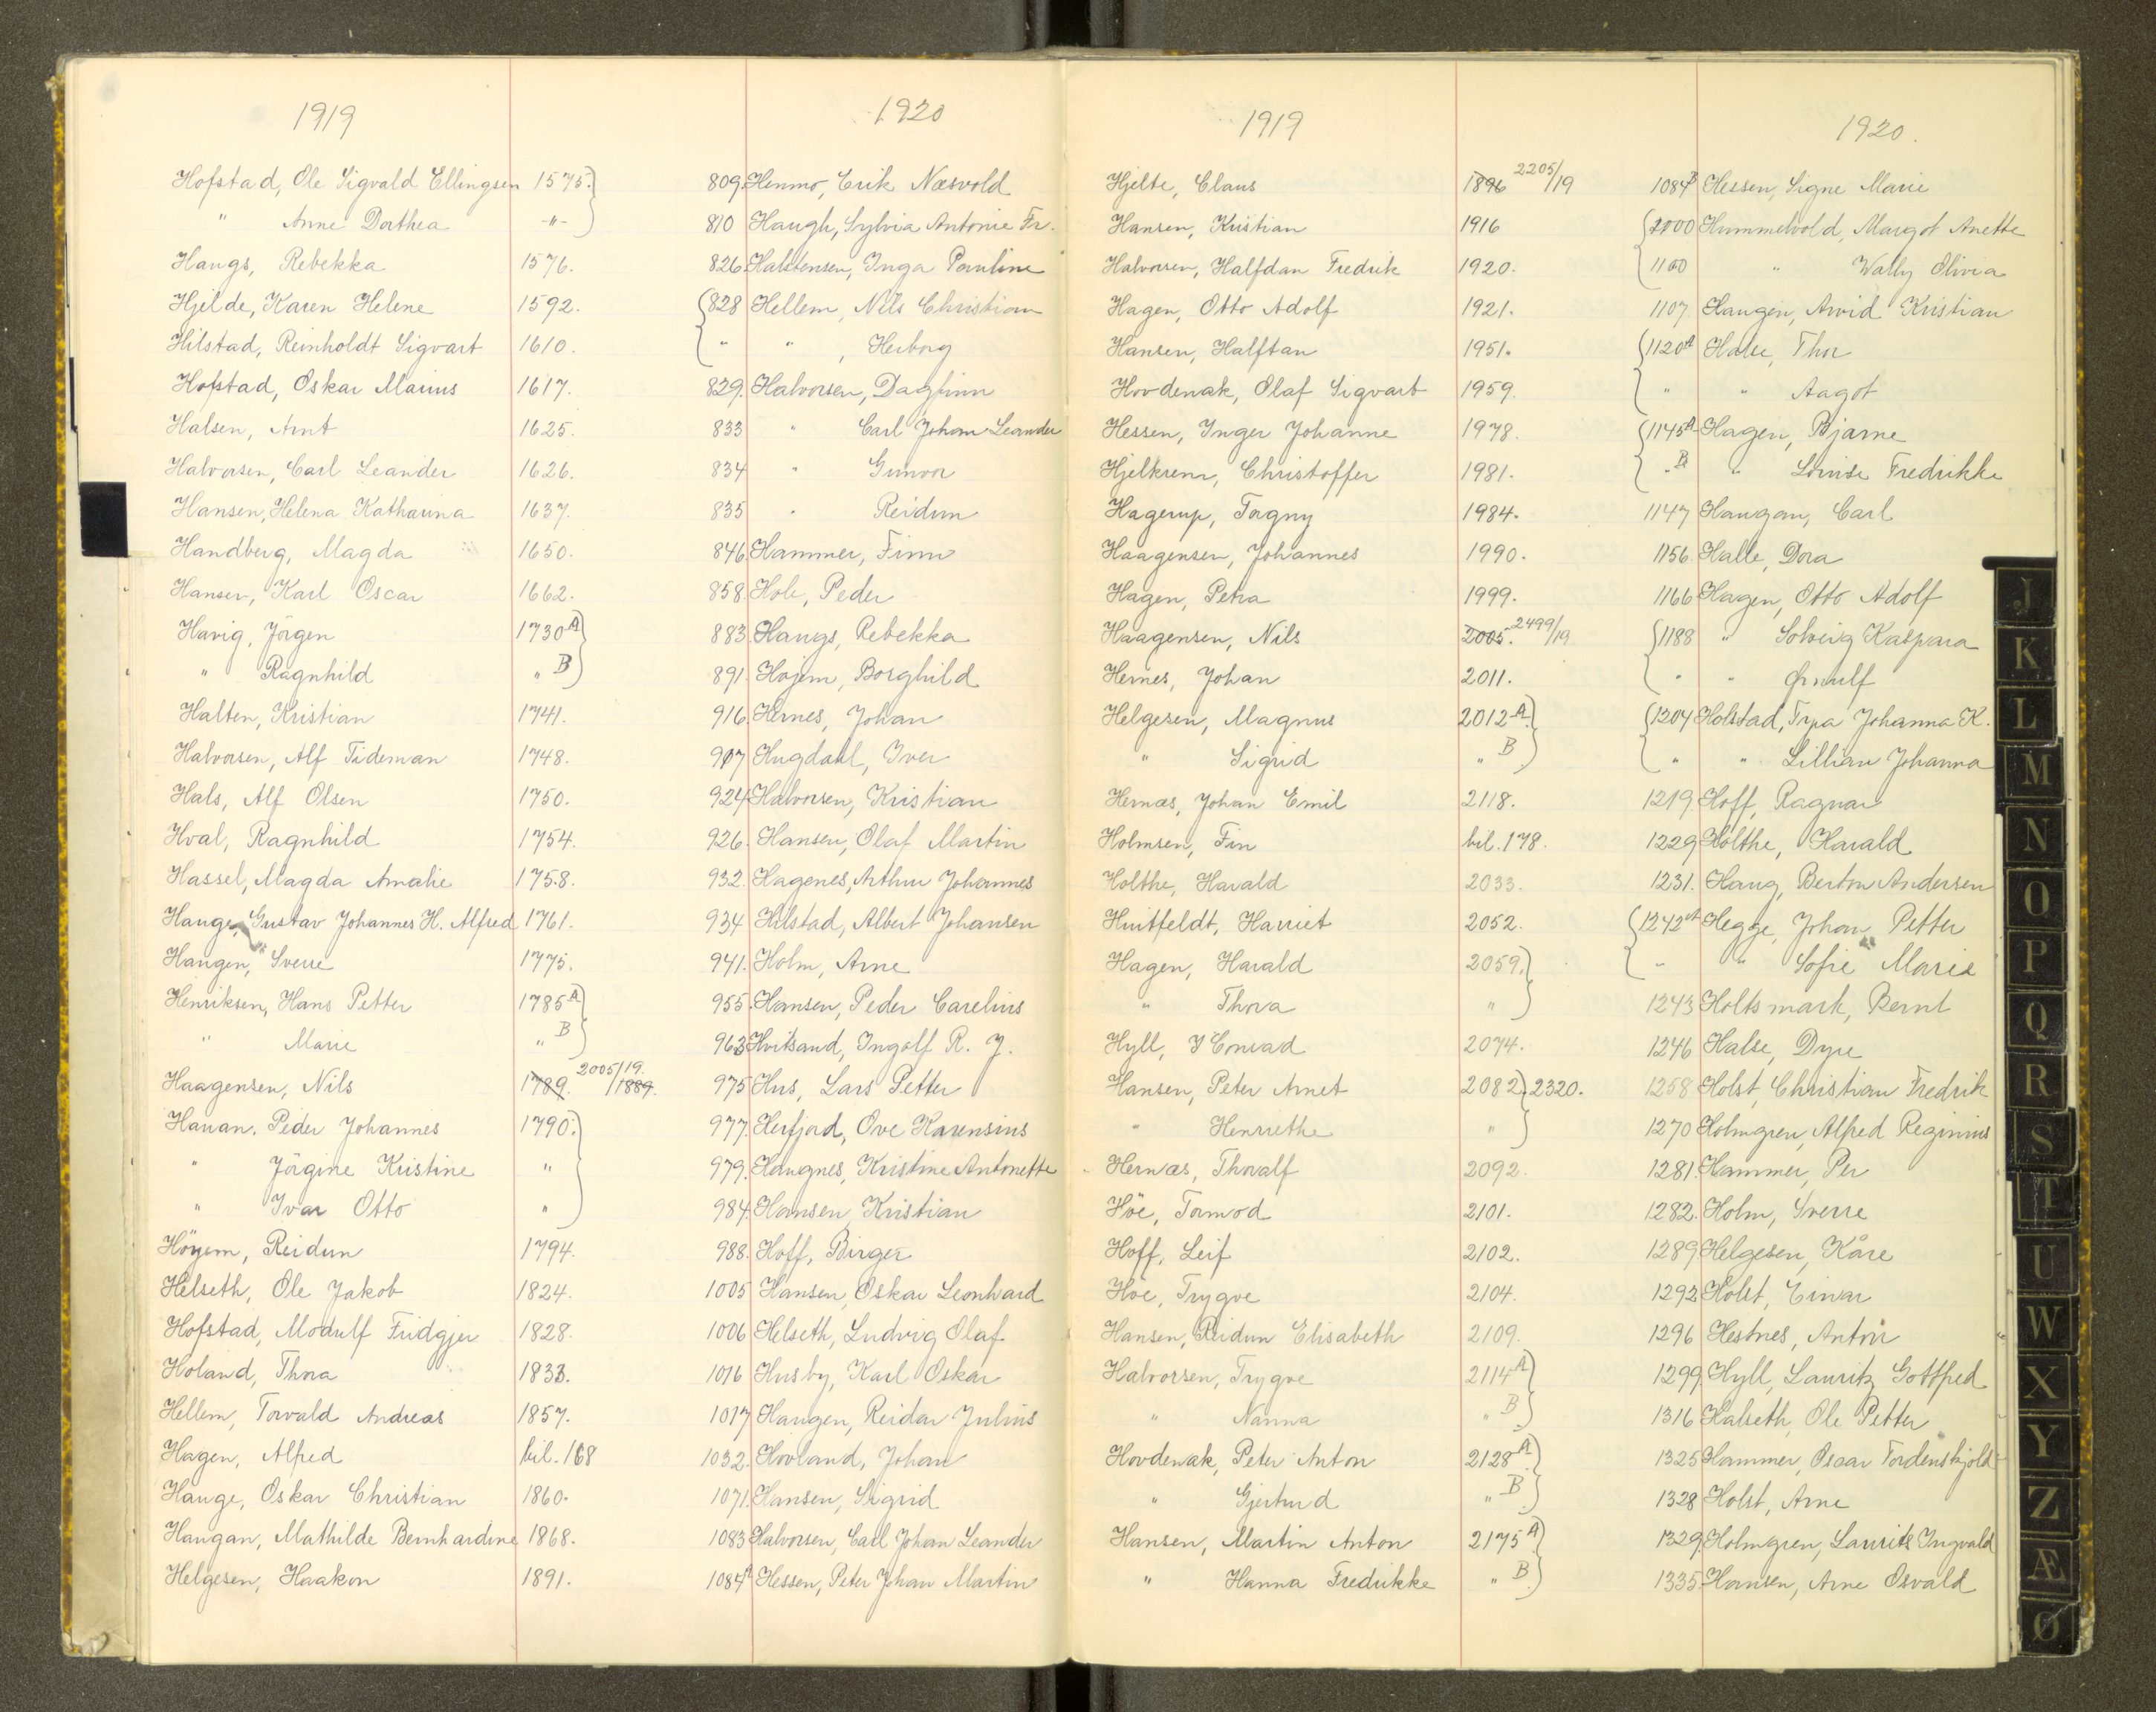 1919
Hofstad, Ole Sigvald Ellingsen 1575.
" Anne Dorthea -"-
Haugs, Rebekka 1576.
Hjelde, Karen Helene 1592.
Hilstad, Reinholdt Sigvart 1610.
Hofstad, Oskar Marius 1617.
Halsen, Arnt 1625.
Halvorsen, Carl Leander 1626.
Hansen, Helena Katharina 1637.
Handberg, Magda 1650.
Hansen, Karl Oscar 1662.
Havig, Jörgen 1730 A
" Ragnhild " B
Halten, Kristian 1741.
Halvorsen, Alf Tideman 1748.
Hals, Alf Olsen 1750.
Hval, Ragnhild 1754.
Hassel, Magda Amalie 1758.
Hauge, Gustav Johannes H. Alfred 1761.
Haugen, Sverre 1775.
Henriksen, Hans Petter 1785 A
" Marie " B
Haagensen, Nils 1789. 2005/19. /1889.
Hanan. Peder Johannes 1790.
" Jörgine Kristine "
" Ivar Otto "
Höyem, Reidun 1794.
Helseth, Ole Jakob 1824.
Hofstad, Modulf Fridgjer 1828.
Holand, Thora 1833.
Hellem, Torvald Andreas 1857.
Hagen, Alfred bil. 168
Hauge, Oskar Christian 1860.
Haugan, Mathilde Bernhardine 1868.
Helgesen, Haakon 1891.
1920
809. Henmo, Erik Næsvold
810 Haugh, Sylvia Antonie Fr.
826. Halstensen, Inga Pauline
828 Hellem, Nils Christian
" " , Herborg
829. Halvorsen, Dagfinn
833 " Carl Johan Leander
834 " Gunvor
835 " Reidun
846. Hammer, Finn
858. Hole, Peder
883. Haugs, Rebekka
891. Hojem, Borghild
916. Hernes, Johan
917 Hugdahl, Iver
924 Halvorsen, Kristian
926. Hansen, Olaf Martin
932. Hagenes, Arthur Johannes
934 Hilstad, Albert Johansen
941. Holm, Arne
955. Hansen, Peder Carelius
963 Hvitsand, Ingolf R. J.
975 Hus, Lars Petter
977. Herfjord, Ove Karensius
979. Haugnes, Kristine Antonette
984. Hansen, Kristian
988. Hoff, Birger
1005 Hansen, Oskar Leonhard
1006 Helseth, Ludvig Olaf
1016 Husby, Karl Oskar
1017 Haugen, Reidar Julius
1032. Hovland, Johan
1071. Hansen, Sigrid
1083 Halvorsen, Carl Johan Leander
1084 A Hessen, Peter Johan Martin
1919
Hjelte, Claus 1896 2205/19
Hansen, Kristian 1916
Halvorsen, Halfdan Fredrik 1920.
Hagen, Otto Adolf 1921.
Hansen, Halftan 1951.
Hovdenak, Olaf Sigvart 1959.
Hessen, Inger Johanne 1978.
Hjelkrem, Christoffer 1981.
Hagerup, Tagny 1984.
Haagensen, Johannes 1990.
Hagen, Petra 1999.
Haagensen, Nils 2005. 2499/19
Hernes, Johan 2011.
Helgesen, Magnus 2012 A.
" Sigrid " B
Hernæs, Johan Emil 2118.
Holmsen, Fin bil. 178.
Holthe, Harald 2033.
Huitfeldt, Harriet 2052.
Hagen, Harald 2059.
" Thora "
Hyll, Conrad 2074.
Hansen, Peter Arnet 2082. 2320.
" Henriethe "
Hernæs, Thoralf 2092.
Höe, Tormod 2101.
Hoff, Leif 2102.
Höe, Trygve 2104.
Hansen, Reidun Elisabeth 2109.
Halvorsen, Trygve 2114 A
" Nanna " B
Hovdenak, Peter Anton 2128 A
" Gjertrud " B
Hansen, Martin Anton 2175 A
" Hanna Fredrikke " B
1920.
1084 B Hessen, Signe Marie
Hummelvold, Margot Anette
1100 " Wally Olivia
1107 Haugen, Arvid Kristian
1120 A Halse, Thor
" " Aagot
1145 A Hagen, Bjarne
" B " Lovise Fredrikke
1147 Haugan, Carl
1156. Halle, Dora
1166 Hagen, Otto Adolf
1188 " Solveig Kaspara
" " Ørnulf
1204 Holstad, Johanna K.
" " Lillian Johanna
1219. Hoff, Ragnar
1229 Holthe, Harald
1231. Haug, Berton Andersen
1242 A Hegge, Johan Petter
" " Sofie Marie
1243 Holtsmark, Bernt
1246 Halse, Dyre
1258 Holst, Christian Fredrik
1270 Holmgren, Alfred Reginius
1281. Hammer, Per
1282. Holm, Sverre
1289 Helgesen, Kåre
1292 Holst, Einar
1296 Hestnes, Antón
1299 Hyll, Lauritz Gottfred
1316 Halseth, Ole Petter
1325 Hammer, Oscar Tordenskjold
1328 Holst, Arne
1329. Holmgren, Laurits Ingvald
1335. Hansen, Arne Osvald
J
K
L
M
N
O
P
Q
R
S
T
U
W
X
Y
Z
Æ
Ø